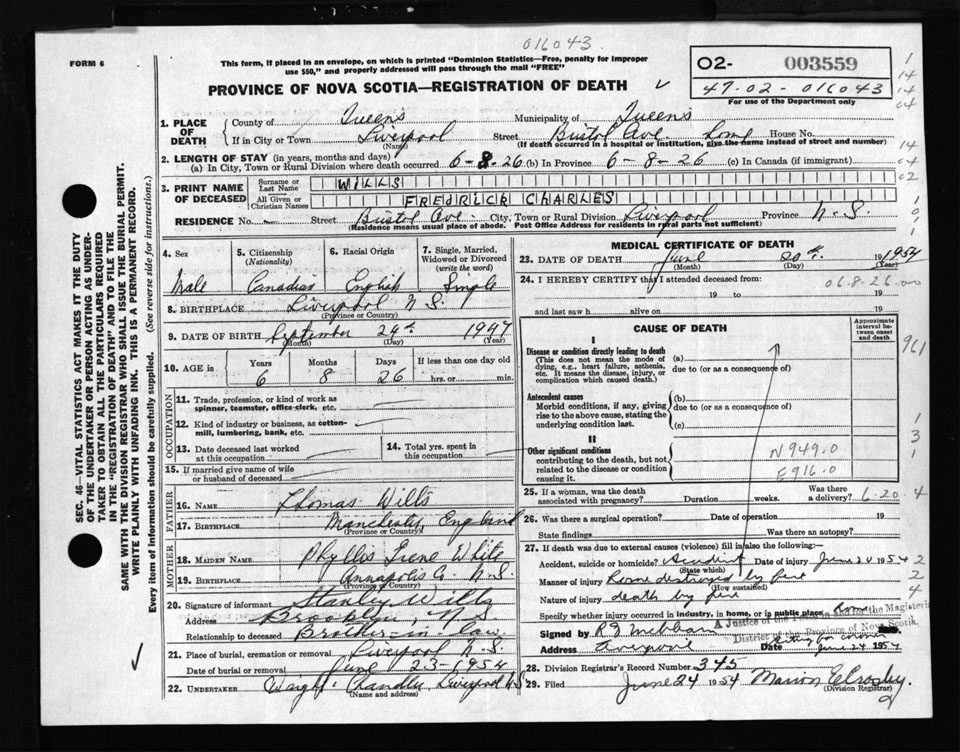 016043.
FORM 6
This form, if placed in an envelope, on which is printed "Dominion Statistics—Free, penalty for improper
use $50," and properly addressed will pass through the mail "FREE"
O2- 003559
47-02-016043
For use of the Department only
PROVINCE OF NOVA SCOTIA—REGISTRATION OF DEATH
1. PLACE OF DEATH
County of Queens Municipality of Queens
If in City or Town Liverpool Street Bristol Ave. Home House No.
(Name) (If death occurred in a hospital or institution, give the name instead of street and number)
2. LENGTH OF STAY (in years, months and days)
(a) In City, Town or Rural Division where death occurred 6-8-26 (b) In Province 6-8-26 (c) In Canada (if immigrant)
3. PRINT NAME OF DECEASED
Surname or Last Name WILLS
All Given or Christian Names FREDRICK CHARLES
RESIDENCE No. Street Bristol Ave. City, Town or Rural Division Liverpool Province N.S.
(Residence means usual place of abode. Post Office Address for residents in rural parts not sufficient)
4. Sex
Male
5. Citizenship
(Nationality)
Canadian
6. Racial Origin
English
7. Single, Married,
Widowed or Divorced
(write the word)
Single
8. BIRTHPLACE Liverpool N.S.
(Province or Country)
9. DATE OF BIRTH September 24th 1947
(Month) (Day) (Year)
10. AGE in
Years Months Days If less than one day old
6 8 26 hrs. or min.
OCCUPATION
11. Trade, profession, or kind of work as
spinner, teamster, office clerk, etc.
12. Kind of industry or business, as cotton-
mill, lumbering, bank, etc.
13. Date deceased last worked
at this occupation
14. Total yrs. spent in
this occupation
15. If married give name of wife
or husband of deceased
FATHER
16. NAME Thomas Wills
17. BIRTHPLACE Manchester, England
(Province or Country)
MOTHER
18. MAIDEN NAME Phyllis Irene White
19. BIRTHPLACE Annapolis Co. N.S.
(Province or Country)
20. Signature of informant Stanley Wills
Address Brooklyn, N.S.
Relationship to deceased Brother-in-law
21. Place of burial, cremation or removal Liverpool N.S.
Date of burial or removal June 23-1954
22. UNDERTAKER Chandler, Liverpool NS
(Name and address)
MEDICAL CERTIFICATE OF DEATH
23. DATE OF DEATH June 20th. 1954
(Month) (Day) (Year)
24. I HEREBY CERTIFY that I attended deceased from:
06-8-26-00
19 to 19
and last saw h alive on 19
CAUSE OF DEATH
Approximate
interval between
onset
and death
I
Disease or condition directly leading to death
(This does not mean the mode of
dying, e.g., heart failure, asthenia,
etc. It means the disease, injury, or
complication which caused death.)
(a)
due to (or as a consequence of)
Antecedent causes
Morbid conditions, if any, giving
rise to the above cause, stating the
underlying condition last.
(b)
due to (or as a consequence of)
(c)
II
Other significant conditions
contributing to the death, but not
related to the disease or condition
causing it.
N949.0
E916.0
25. If a woman, was the death
associated with pregnancy? Duration weeks. Was there
a delivery? 6-20-4
26. Was there a surgical operation? Date of operation 19
State findings Was there an autopsy?
27. If death was due to external causes (violence) fill in also the following:
Accident, suicide or homicide? Accident Date of injury June 20 1954
(State which)
Manner of injury Home destroyed by fire
(How sustained)
Nature of injury death by fire
Specify whether injury occurred in industry, in home, or in public place Home
A Justice of the Peace in and for the Magisterial
District of the Province of Nova Scotia
Signed by
acting for coroner
Address Liverpool Date June 24 1954
28. Division Registrar's Record Number 345
29. Filed June 24 1954 Marion E Crosby.
(Division Registrar)
SEC. 46—VITAL STATISTICS ACT MAKES IT THE DUTY
OF THE UNDERTAKER OR PERSON ACTING AS UNDER-
TAKER TO OBTAIN ALL THE PARTICULARS REQUIRED
IN THE "REGISTRATION OF DEATH" AND TO FILE THE
SAME WITH THE DIVISION REGISTRAR WHO SHALL ISSUE THE BURIAL PERMIT.
WRITE PLAINLY WITH UNFADING INK. THIS IS A PERMANENT RECORD.
Every item of information should be carefully supplied. (See reverse side for instructions.)